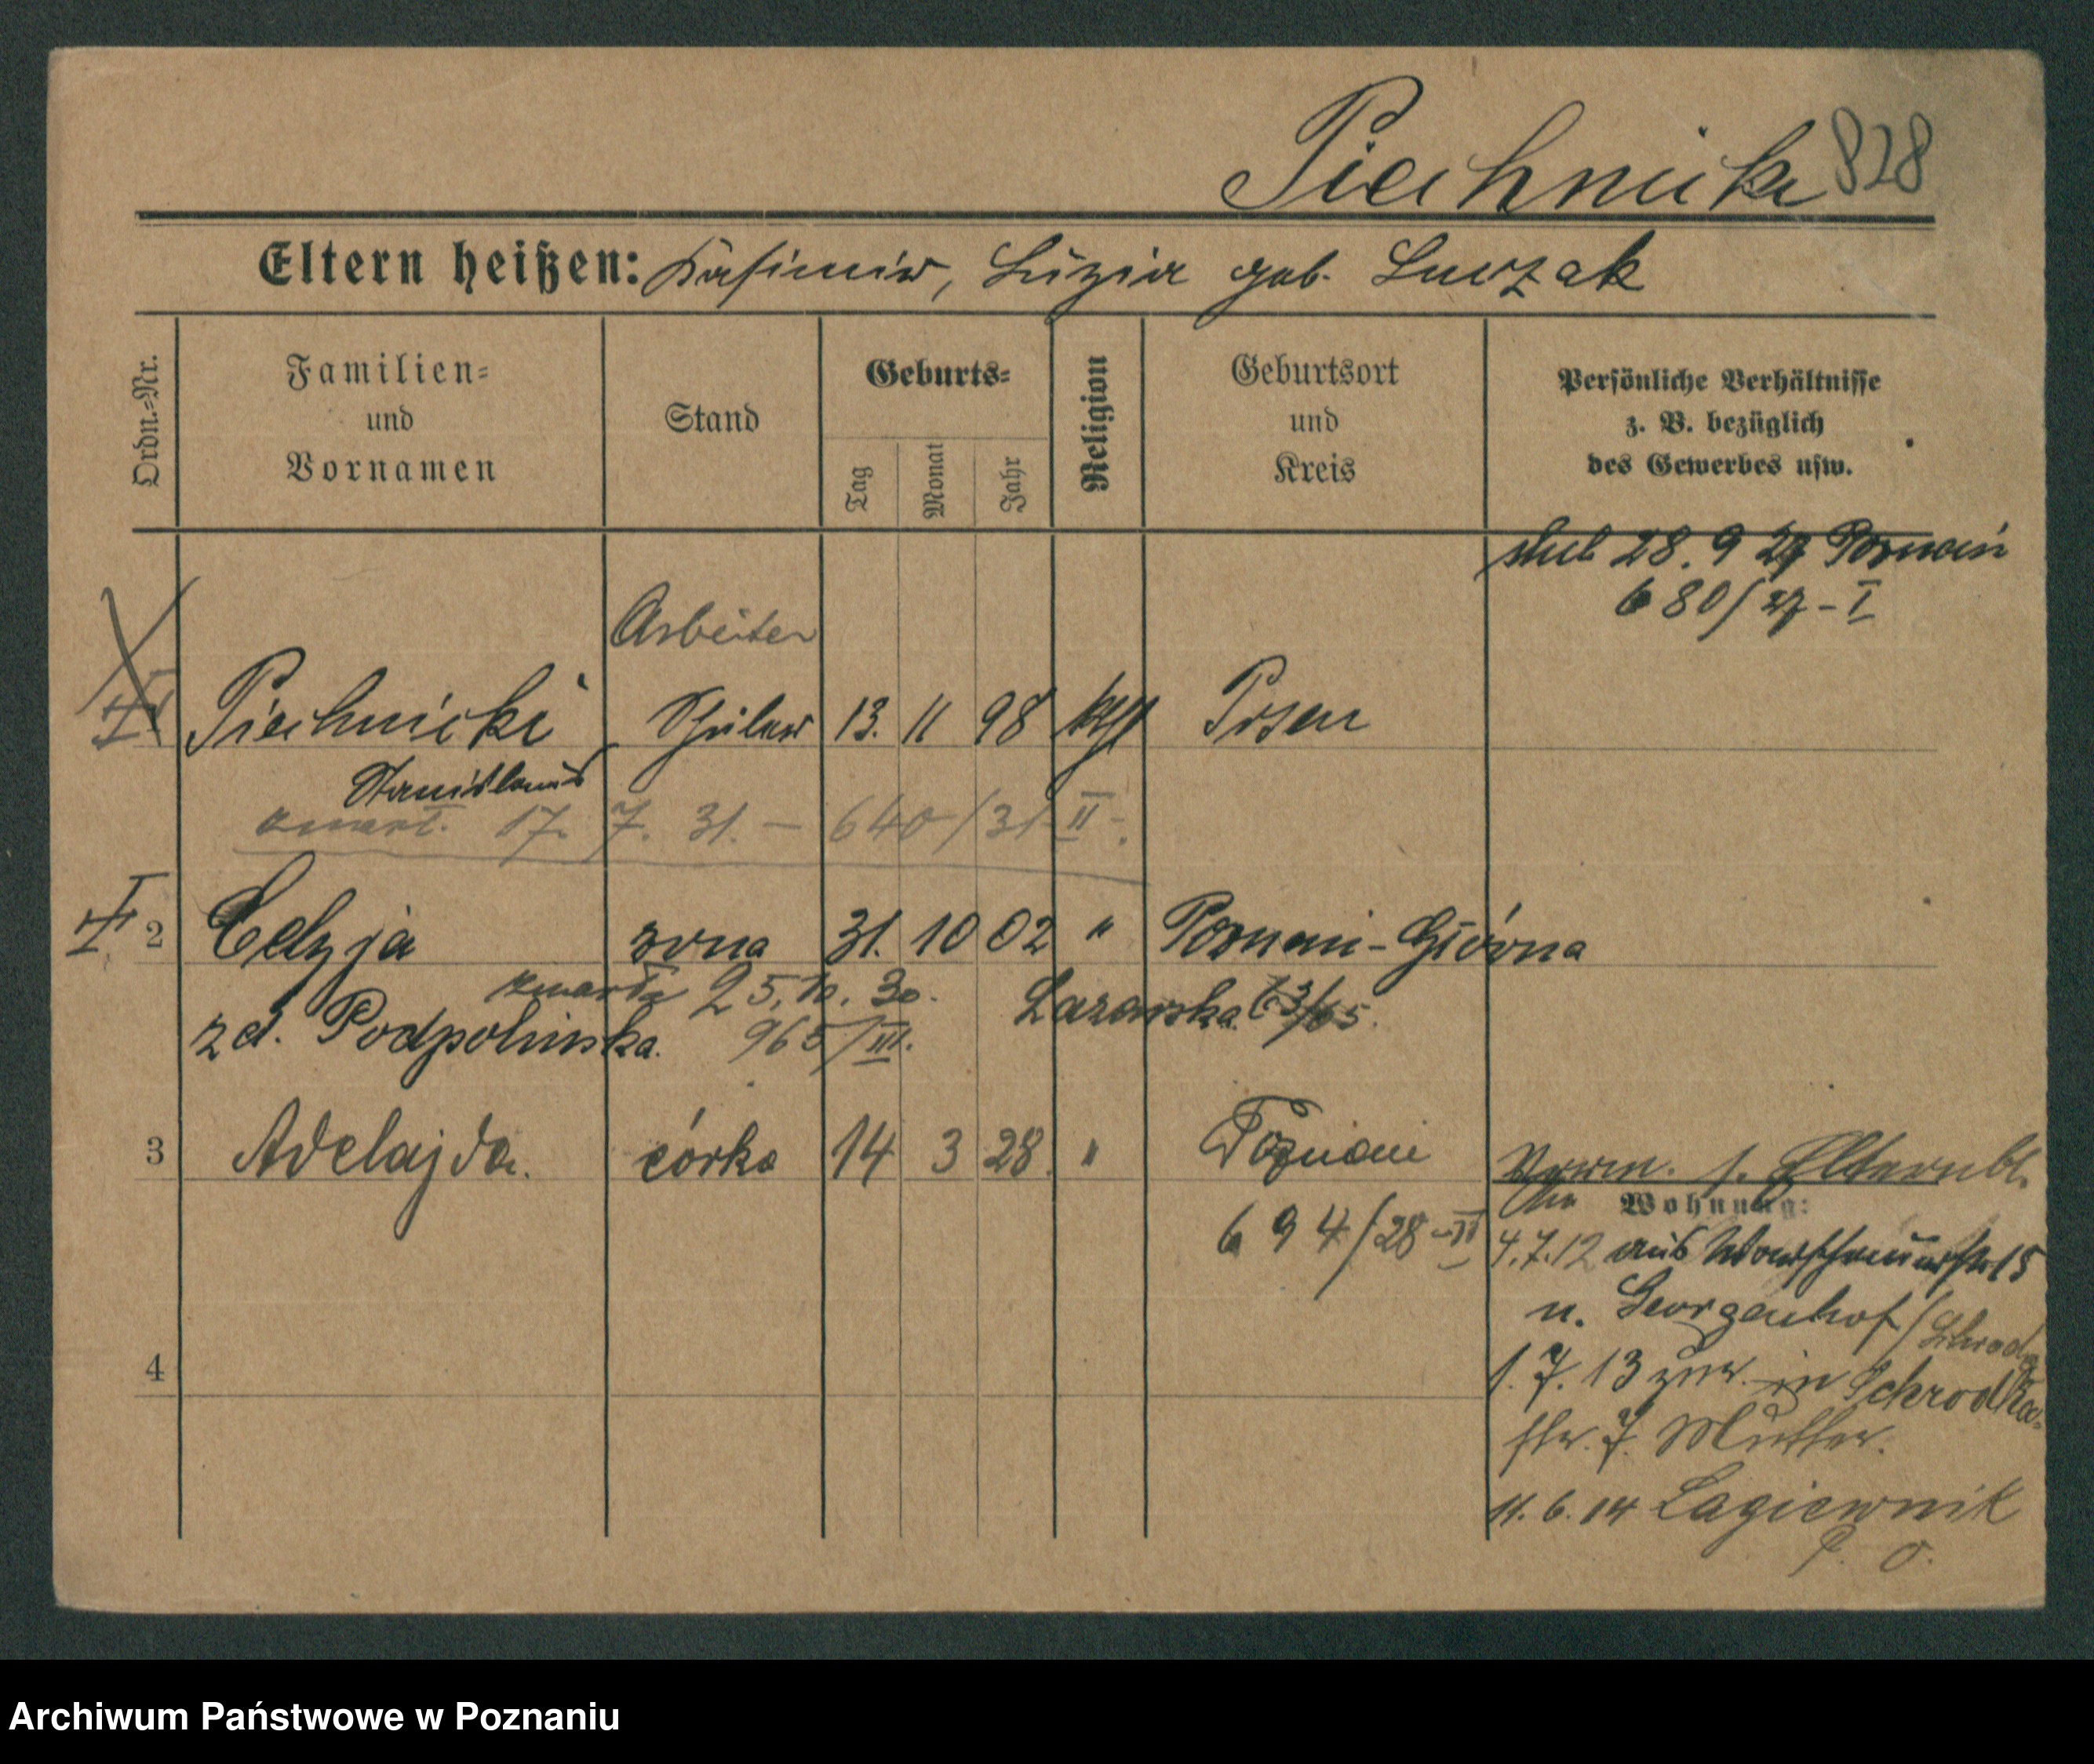 Piechnicki 828
Eltern heißen: Kasimir, Luzia geb. Luczak
Ordn.-Nr.
Familien-
und
Vornamen
Stand
Geburts-
Tag
Monat
Jahr
Religion
Geburtsort
und
Kreis
Persönliche Verhältnisse
z. B. bezüglich
des Gewerbes usw.
ślub 28. 9 27 Poznań
680/27-I
Arbeiter
Piechnicki Schüler 13. 11 98 kth Posen
Stanislaus
zmarł. 17. 7. 31. – 640/31 II
2 Celzja żona 31. 10 02 " Poznań-Główna
zmarła 25. 10. 30.
zd. Podpolinska. 965/III.
3 Adelajda. córka 14 3 28. " Poznań
694/28-II
Verm. s. Elternbl.
Wohnung:
4.7.12 aus 15
n. Georgenhof/Schroda
1.7.13 zur. in Schrodka-
str. 7. Mutter.
11.6.14 Lagiewnik
P. O.
4
Archiwum Państwowe w Poznaniu